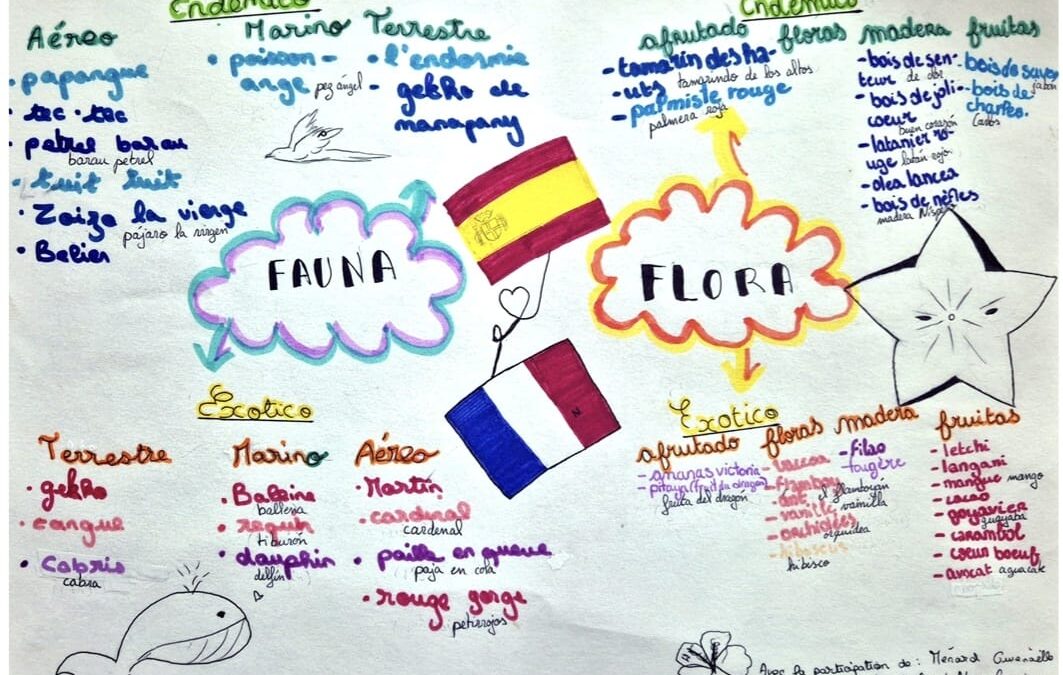 Endémico
Aéreo
- papangue
• tec.tec
• petrel barau
barau petrel
• tuit tuit
• Zoiza la vierge
pájaro la virgen
• Belier
Marino
• poisson-
ange
pez ángel
Terrestre
• l'endormie
- gekko de
manapany
Endémico
afrutado
- tamarin des ha-
uts
tamarindo de los altos
- palmiste rouge
palmera roja
floras
madera
- bois de sen-
teur
de olor
- bois de joli-
coeur
buen corazón
- latanier ro-
uge
latán rojo
- olea lancea
- bois de nèfles
madera Nisp
fruitas
- bois de
jabón
- bois de
charles.
Carlos
FAUNA
FLORA
Exotico
Terrestre
• gekko
• tangue
• cabris
cabra
Marino
• Baleine
ballena
• requin
tiburón
• dauphin
delfín
Aéreo
• Martin
• cardinal
cardenal
• paille en queue
paja en cola
• rouge gorge
petirrojos
Exotico
afrutado
- ananas victoria
- pitaya (fruit du dragon)
fruta del dragón
floras
- flamboy
ant
el flamboyan
- vanille
vainilla
- orchidées
orquidea
- hibiscus
hibisco
madera
- filao
- fougère
fruitas
- letchi
- longani
- mangue
mango
- cacao
- goyavier
guayaba
- carambol
- coeur boeuf
- avocat
aguacate
Avec la participation de : Ménard Gwenaëlle